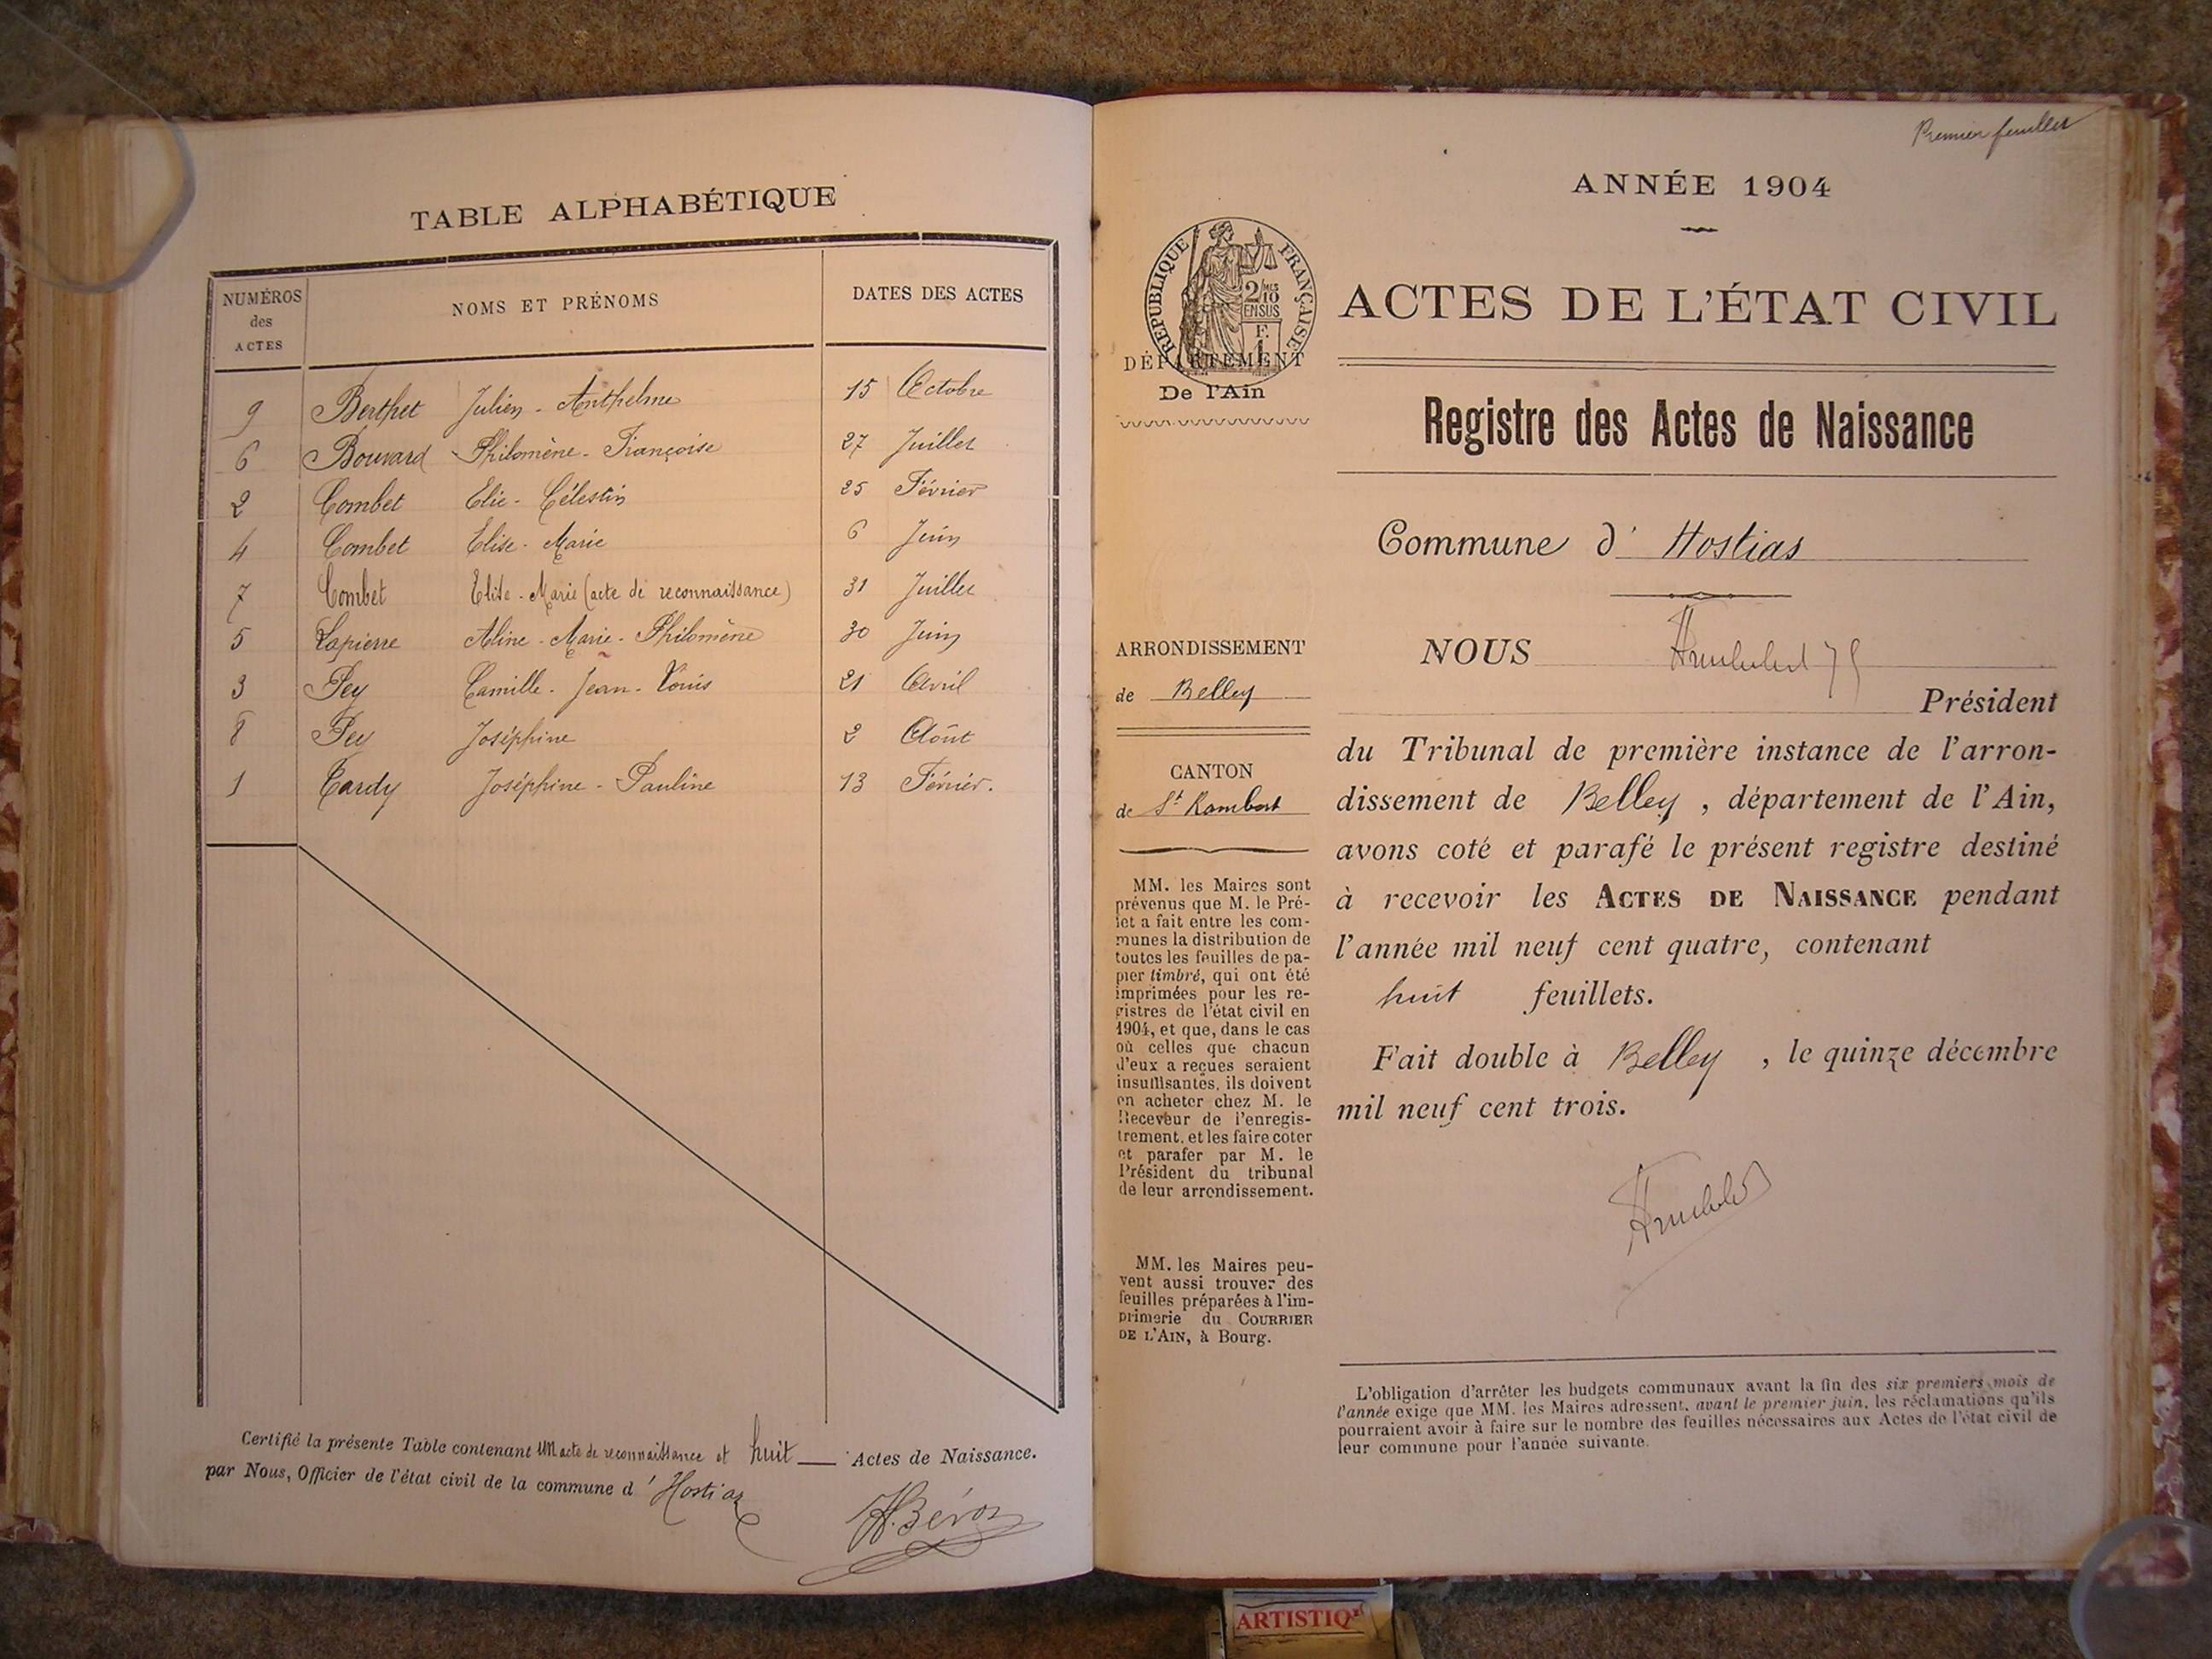 TABLE ALPHABÉTIQUE
NUMÉROS
des
ACTES
NOMS ET PRÉNOMS
DATES DES ACTES
9 Berthet Julien - Anthelme 15 Octobre
6 Bouvard Philomène - Françoise 27 Juillet
2 Combet Elie - Célestin 25 Février
4 Combet Elise - Marie 6 Juin
7 Combet Elise - Marie (acte de reconnaissance) 31 Juillet
5 Lapierre Aline - Marie - Philomène 30 Juin
3 Pey Camille - Jean - Louis 21 Avril
8 Pey Joséphine 2 Août
1 Tardy Joséphine - Pauline 13 Février.
Certifié la présente Table contenant un acte de reconnaissance et huit Actes de Naissance.
par Nous, Officier de l'état civil de la commune d'Hostiaz
Premier feuillet
ANNÉE 1904
RÉPUBLIQUE FRANÇAISE
2/10
EN SUS
F.
1
DÉPARTEMENT
De l'Ain
ACTES DE L'ÉTAT CIVIL
Registre des Actes de Naissance
Commune d' Hostias
ARRONDISSEMENT
de Belley
CANTON
de St Rambert
MM. les Maires sont
prévenus que M. le Pré-
fet a fait entre les com-
munes la distribution de
toutes les feuilles de pa-
pier timbré, qui ont été
imprimées pour les re-
gistres de l'état civil en
1904, et que, dans le cas
où celles que chacun
d'eux a reçues seraient
insuffisantes, ils doivent
en acheter chez M. le
Receveur de l'enregis-
trement, et les faire coter
et parafer par M. le
Président du tribunal
de leur arrondissement.
MM. les Maires peu-
vent aussi trouver des
feuilles préparées à l'im-
primerie du COURRIER
DE L'AIN, à Bourg.
NOUS
Président
du Tribunal de première instance de l'arron-
dissement de Belley, département de l'Ain,
avons coté et parafé le présent registre destiné
à recevoir les ACTES DE NAISSANCE pendant
l'année mil neuf cent quatre, contenant
huit feuillets.
Fait double à Belley, le quinze décembre
mil neuf cent trois.
L'obligation d'arrêter les budgets communaux avant la fin des six premiers mois de
l'année exige que MM. les Maires adressent, avant le premier juin, les réclamations qu'ils
pourraient avoir à faire sur le nombre des feuilles nécessaires aux Actes de l'état civil de
leur commune pour l'année suivante.
ARTISTIQ